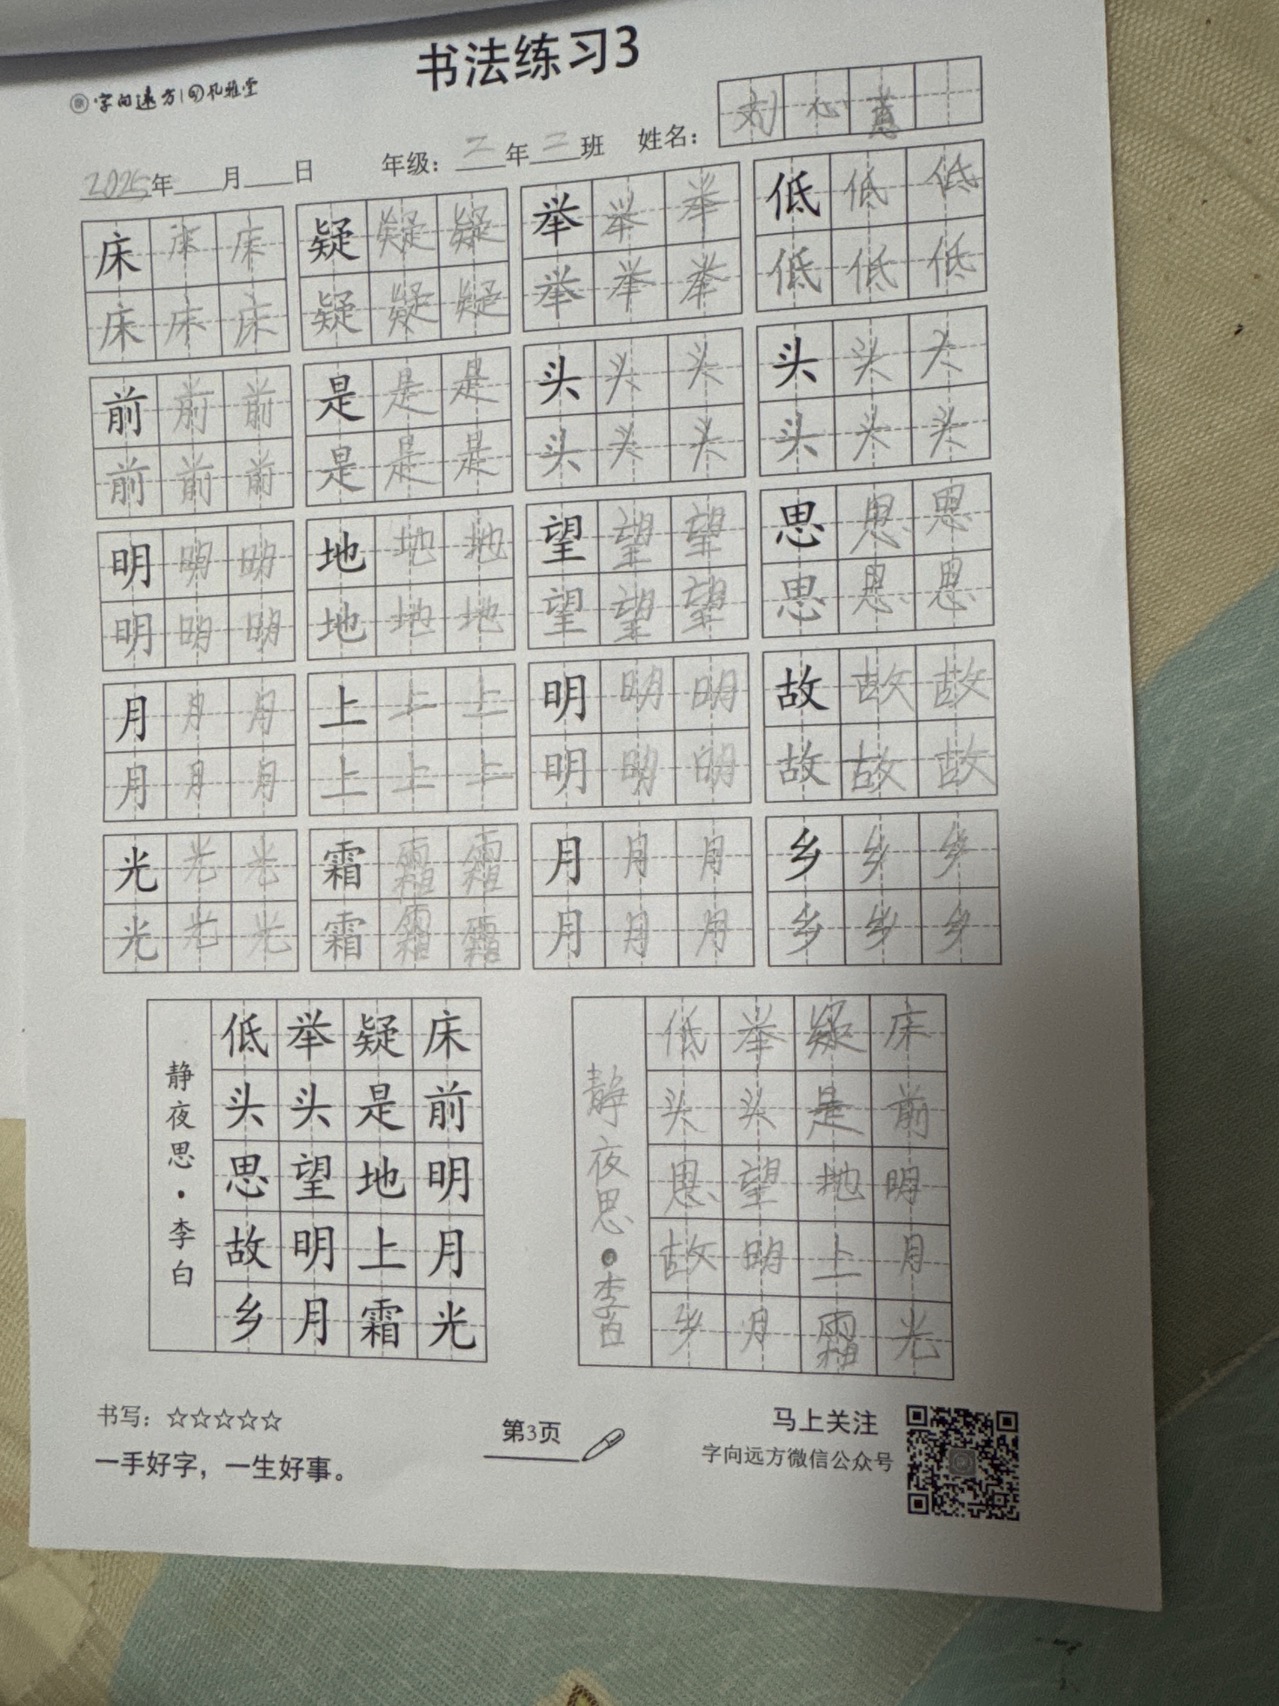 书法练习3
字向远方
2025年___月___日 年级：二年二班 姓名：刘心蕙
床床床 疑疑疑 举举举 低低低
床床床 疑疑疑 举举举 低低低
前前前 是是是 头头头 头头头
前前前 是是是 头头头 头头头
明明明 地地地 望望望 思思思
明明明 地地地 望望望 思思思
月月月 上上上 明明明 故故故
月月月 上上上 明明明 故故故
光光光 霜霜霜 月月月 乡乡乡
光光光 霜霜霜 月月月 乡乡乡
床前明月光
疑是地上霜
举头望明月
低头思故乡
静夜思·李白
床前明月光
疑是地上霜
举头望明月
低头思故乡
静夜思·李白
书写：☆☆☆☆☆
一手好字，一生好事。
第3页
马上关注
字向远方微信公众号